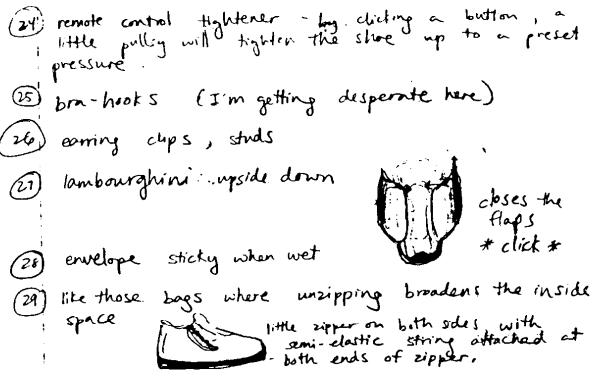 24 remote control tightener - by clicking a button, a
little pulley will tighten the shoe up to a preset
pressure.
25 bra-hooks (I'm getting desperate here)
26 earring clips, studs
27 lambourghini... upside down
closes the
flaps
* click *
28 envelope sticky when wet
29 like those bags where unzipping broadens the inside
space
little zipper on both sides with
semi-elastic string attached at
- both ends of zipper.